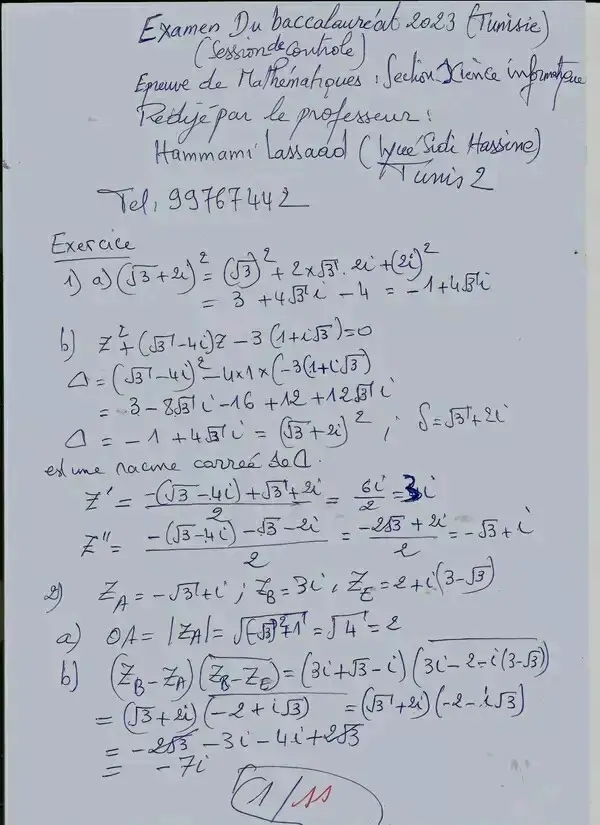 Examen Du baccalauréat 2023 (Tunisie)
(Session de contrôle)
Epreuve de Mathématiques : Section Science informatique
Rédijé par le professeur :
Hammami Lassaad (lycée Sidi Hassine)
Tunis 2
Tel: 99767442
Exercice
1) a) (√3+2i)² = (√3)² + 2×√3·2i + (2i)²
= 3 + 4√3 i − 4 = −1 + 4√3 i
b) Z² + (√3 − 4i)Z − 3(1+i√3) = 0
Δ = (√3 − 4i)² − 4×1×(−3(1+i√3)
= 3 − 8√3 i − 16 + 12 + 12√3 i
Δ = −1 + 4√3 i = (√3+2i)² ; δ = √3 + 2i
est une racine carreé de Δ.
Z' = (−(√3 − 4i) + √3 + 2i)/2 = 6i/2 = 3i
Z'' = (−(√3 − 4i) − √3 − 2i)/2 = (−2√3 + 2i)/2 = −√3 + i
2) Z_A = −√3 + i ; Z_B = 3i, Z_E = 2 + i(3−√3)
a) OA = |Z_A| = √((−√3)² + 1) = √4 = 2
b) (Z_B − Z_A)(Z̅_B̅ ̅−̅ ̅Z̅_E̅) = (3i + √3 − i)(3̅i̅ ̅−̅ ̅2̅ ̅−̅ ̅i̅(̅3̅−̅√̅3̅)̅)
= (√3 + 2i)(−̅2̅ ̅+̅ ̅i̅√̅3̅) = (√3 + 2i)(−2 − i√3)
= −2√3 − 3i − 4i + 2√3
= −7i
1/11